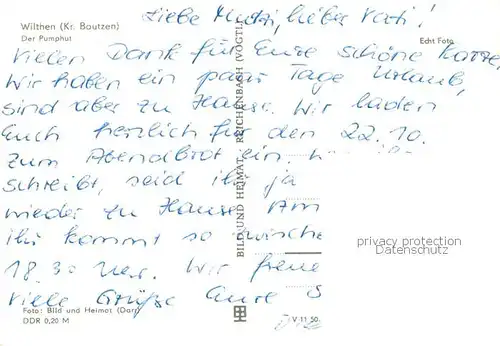 Liebe Mutti, lieber Vati!
Wilthen (Kr. Bautzen)
Der Pumphut
Echt Foto
Vielen Dank für Eure schöne Karte,
wir haben ein paar Tage Urlaub,
sind aber zu Hause. Wir laden
Euch herzlich für den 22.10.
zum Abendbrot ein.
schreibt, seid ihr ja
wieder zu Hause. Am
ihr kommt so zwische
18.30 Uhr. Wir freue
viele Grüße Eure S
BILD UND HEIMAT REICHENBACH (VOGTL
privacy protection
Datenschutz
Foto: Bild und Heimat (Darr)
DDR 0,20 M
V 11 50